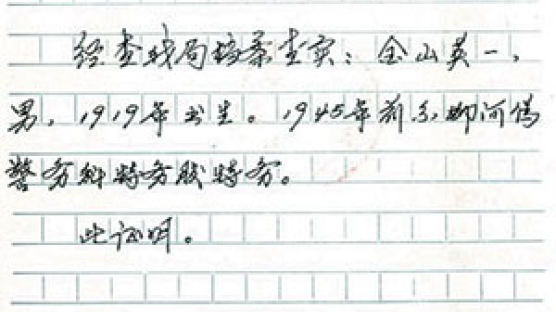 经查我局档案查实：金山英一，
男，1919年出生。1945年前系柳河伪
警务科特务股特务。
此证明。